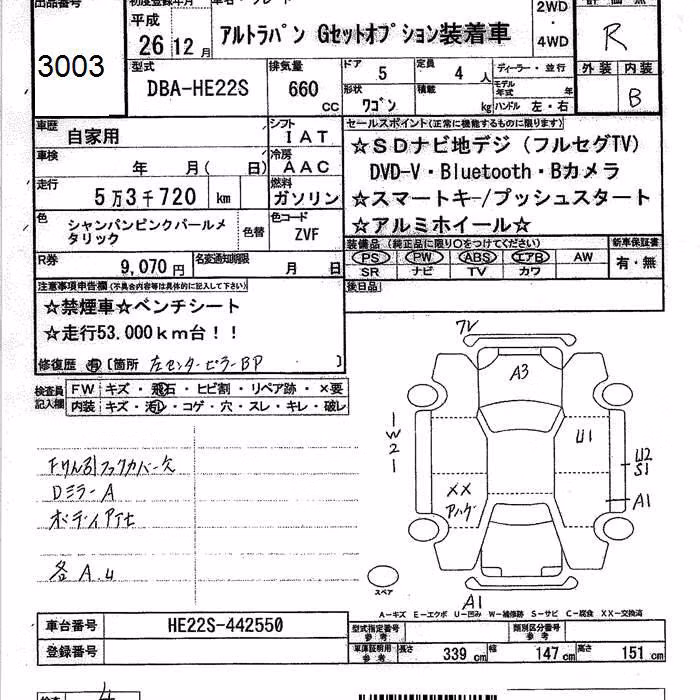 出品番号
初度登録年月
平成
26 12 月
アルトラパン Gセットオプション装着車
2WD
・
4WD
R
3003
型式
DBA-HE22S
排気量
660
CC
ドア 5
定員 4 人
形状
ワゴン
積載
kg
ディーラー・並行
モデル
年式 年
ハンドル 左・右
外装 内装
B
車歴
自家用
シフト
IAT
車検
年 月( 日)
冷房
AAC
走行
5万3千720 km
燃料
ガソリン
色
シャンパンピンクパールメ
タリック
色替
色コード
ZVF
R券
9,070 円
名変通知期限
月 日
セールスポイント(正常に機能するものに限ります)
☆SDナビ地デジ(フルセグTV)
DVD-V・Bluetooth・Bカメラ
☆スマートキー/プッシュスタート
☆アルミホイール☆
装備品(純正品に限り○をつけてください)
PS PW ABS エアB AW
SR ナビ TV カワ
新車保証書
有・無
後日品
注意事項申告欄(不具合内容等は具体的に記入して下さい)
☆禁煙車☆ベンチシート
☆走行53.000km台!!
修復歴 有 [箇所 左センターピラーBP ]
検査員
記入欄
FW キズ・飛石・ヒビ割・リペア跡・×要
内装 キズ・汚レ・コゲ・穴・スレ・キレ・破レ
DミラーA
各A.U
A3
W2
U1
U2
S1
A1
XX
アハゲ
A1
スペア
A-キズ E-エクボ U-凹み W-補修跡 S-サビ C-腐食 XX-交換済
車台番号
HE22S-442550
登録番号
型式指定番号
参考
類別区分番号
参考
車庫証明用
参考
長さ 339 cm
幅 147 cm
高さ 151 cm